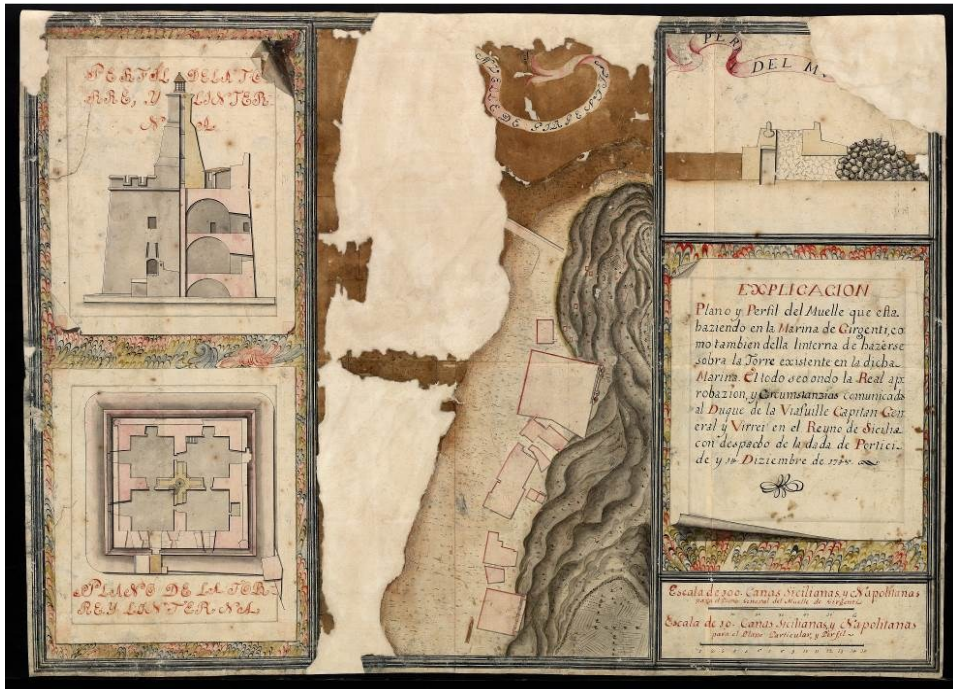 PERFIL DE LA TO
RRE, Y LINTER
NA
MUELLE DE
PER
DEL M
EXPLICACION
Plano y Perfil del Muelle que esta
haziendo en la Marina de Girgenti, co
mo tambien della linterna de hazerse
sobra la Torre existente en la dicha
Marina. El todo secondo la Real ap
robazion, y Circumstanzias comunicada
al Duque de la Viafuille Capitan Gen
eral y Virrei en el Reyno de Sicilia
con despacho de la dada de Portici
de y Diziembre de
PLANO DE LA TOR
RE Y LINTERNA
Escala de 100 Canas Sicilianas, y Napolitanas
para el Plano General del Muelle de Girgenti
Escala de 10 Canas Sicilianas, y Napolitanas
para el Plano Particular, y Perfil